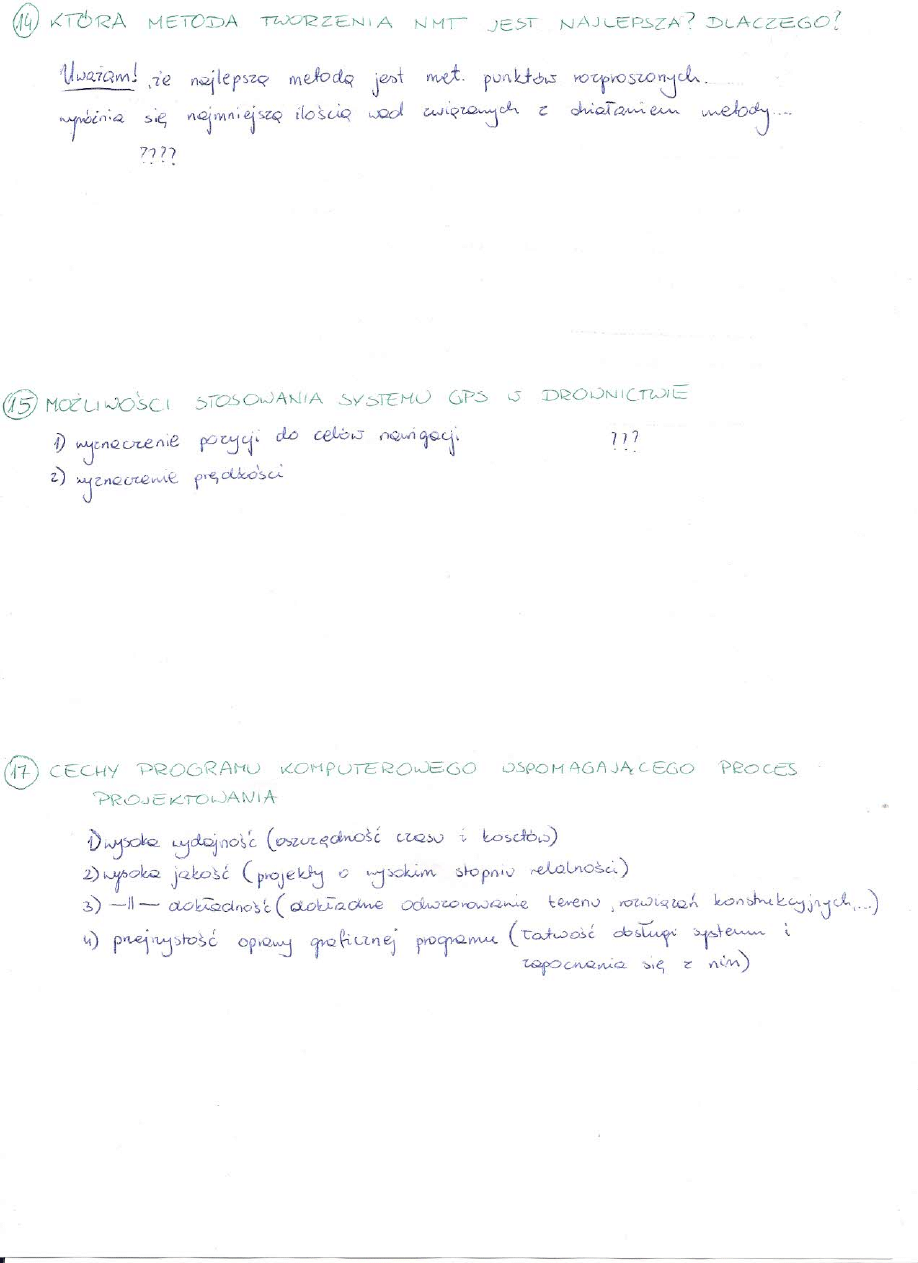 14 KTÓRA METODA TWORZENIA NMT JEST NAJLEPSZA? DLACZEGO?
Uważam!, że najlepszą metodą jest met. punktów rozproszonych.
wyróżnia się najmniejszą ilością wad związanych z działaniem metody...
????
15 MOŻLIWOŚCI STOSOWANIA SYSTEMU GPS W DROWNICTWIE
1) wyznaczenie pozycji do celów nawigacji ???
2) wyznaczenie prędkości
17 CECHY PROGRAMU KOMPUTEROWEGO WSPOMAGAJĄCEGO PROCES
PROJEKTOWANIA
1) wysoka wydajność (oszczędność czasu i kosztów)
2) wysoka jakość (projekty o wysokim stopniu relalności)
3) —||— dokładność (dokładne odwzorowanie terenu, rozwiązań konstrukcyjnych,...)
4) przejrystość oprawy graficznej programu (łatwość obsługi systemu i
zapoznania się z nim)